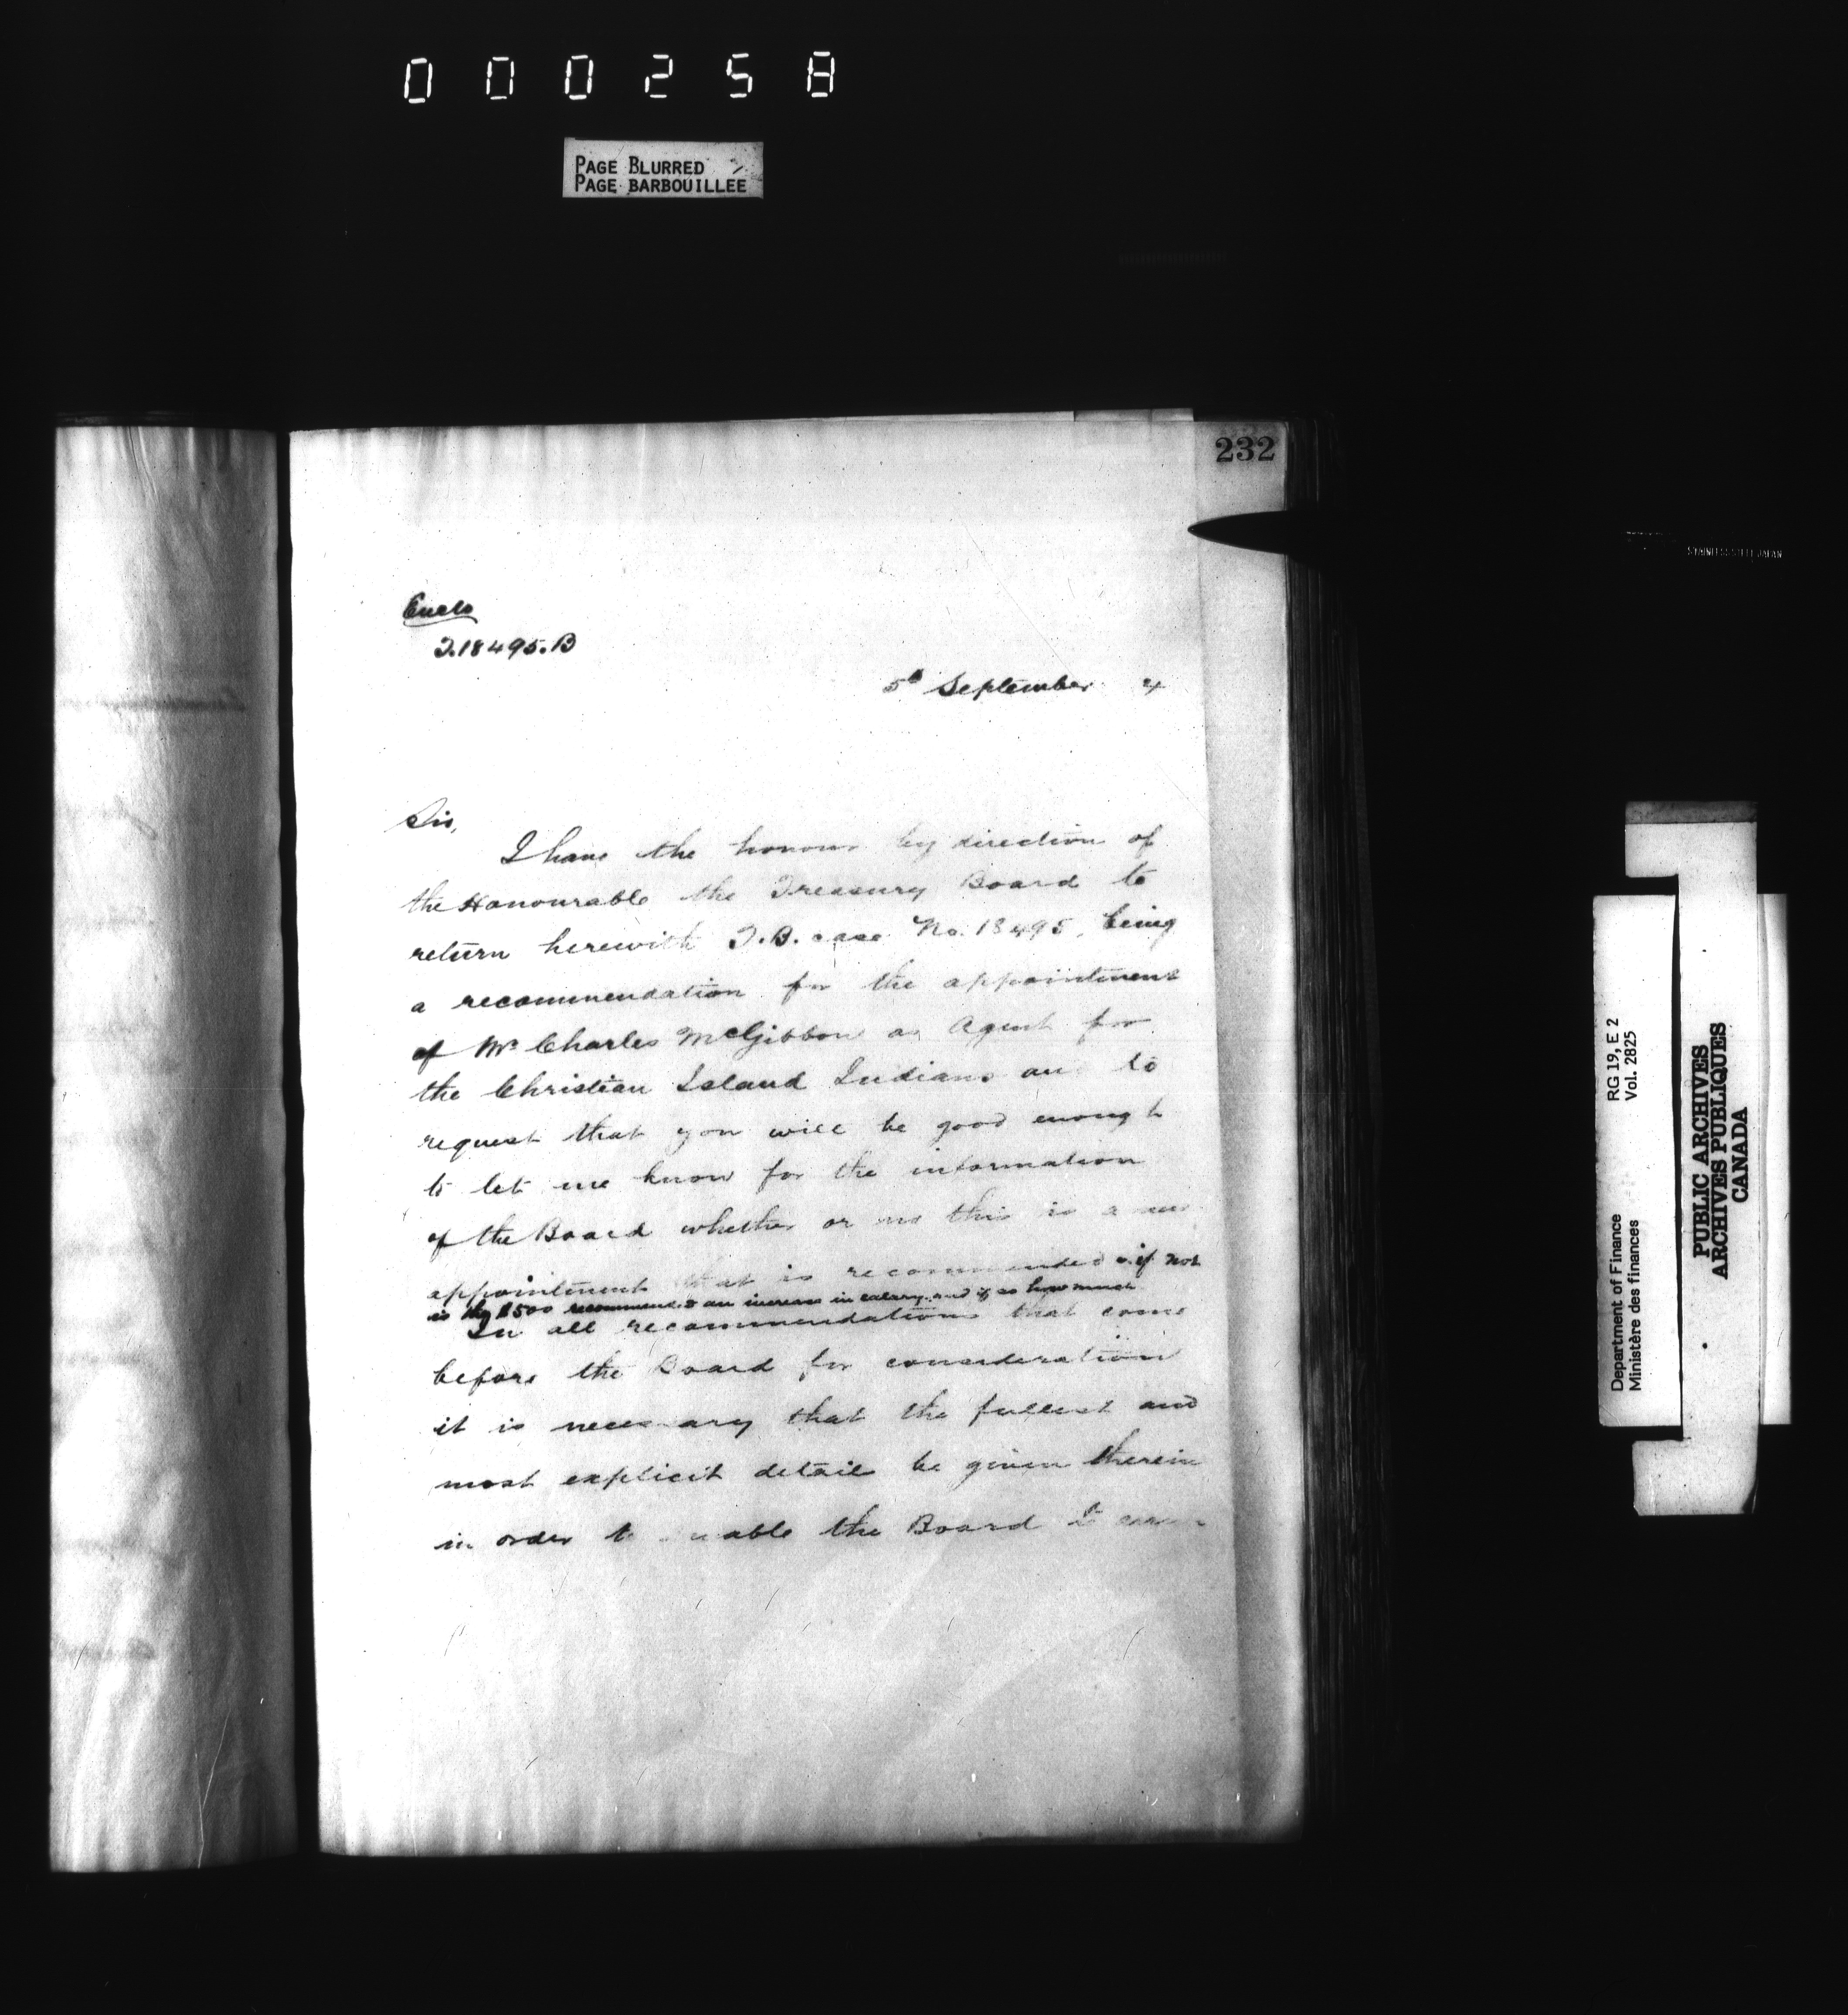 000258
PAGE BLURRED
PAGE BARBOUILLEE
232
Encls
T.18495.B
5th September 4
Sir,
I have the honour by direction of
the Honourable the Treasury Board to
return herewith T.B. case No. 18495, being
a recommendation for the appointment
of Mr Charles McGibbon as Agent for
the Christian Island Indians and to
request that you will be good enough
to let me know for the information
of the Board whether or no this is a new
appointment that is recommended & if not
is the $500 recommended an increase in salary and if so how much
In all recommendations that come
before the Board for consideration
it is necessary that the fullest and
most explicit detail be given therein
in order to enable the Board to
STAINLESS STEEL JAPAN
RG 19, E 2
Vol. 2825
Department of Finance
Ministère des finances
PUBLIC ARCHIVES
ARCHIVES PUBLIQUES
CANADA